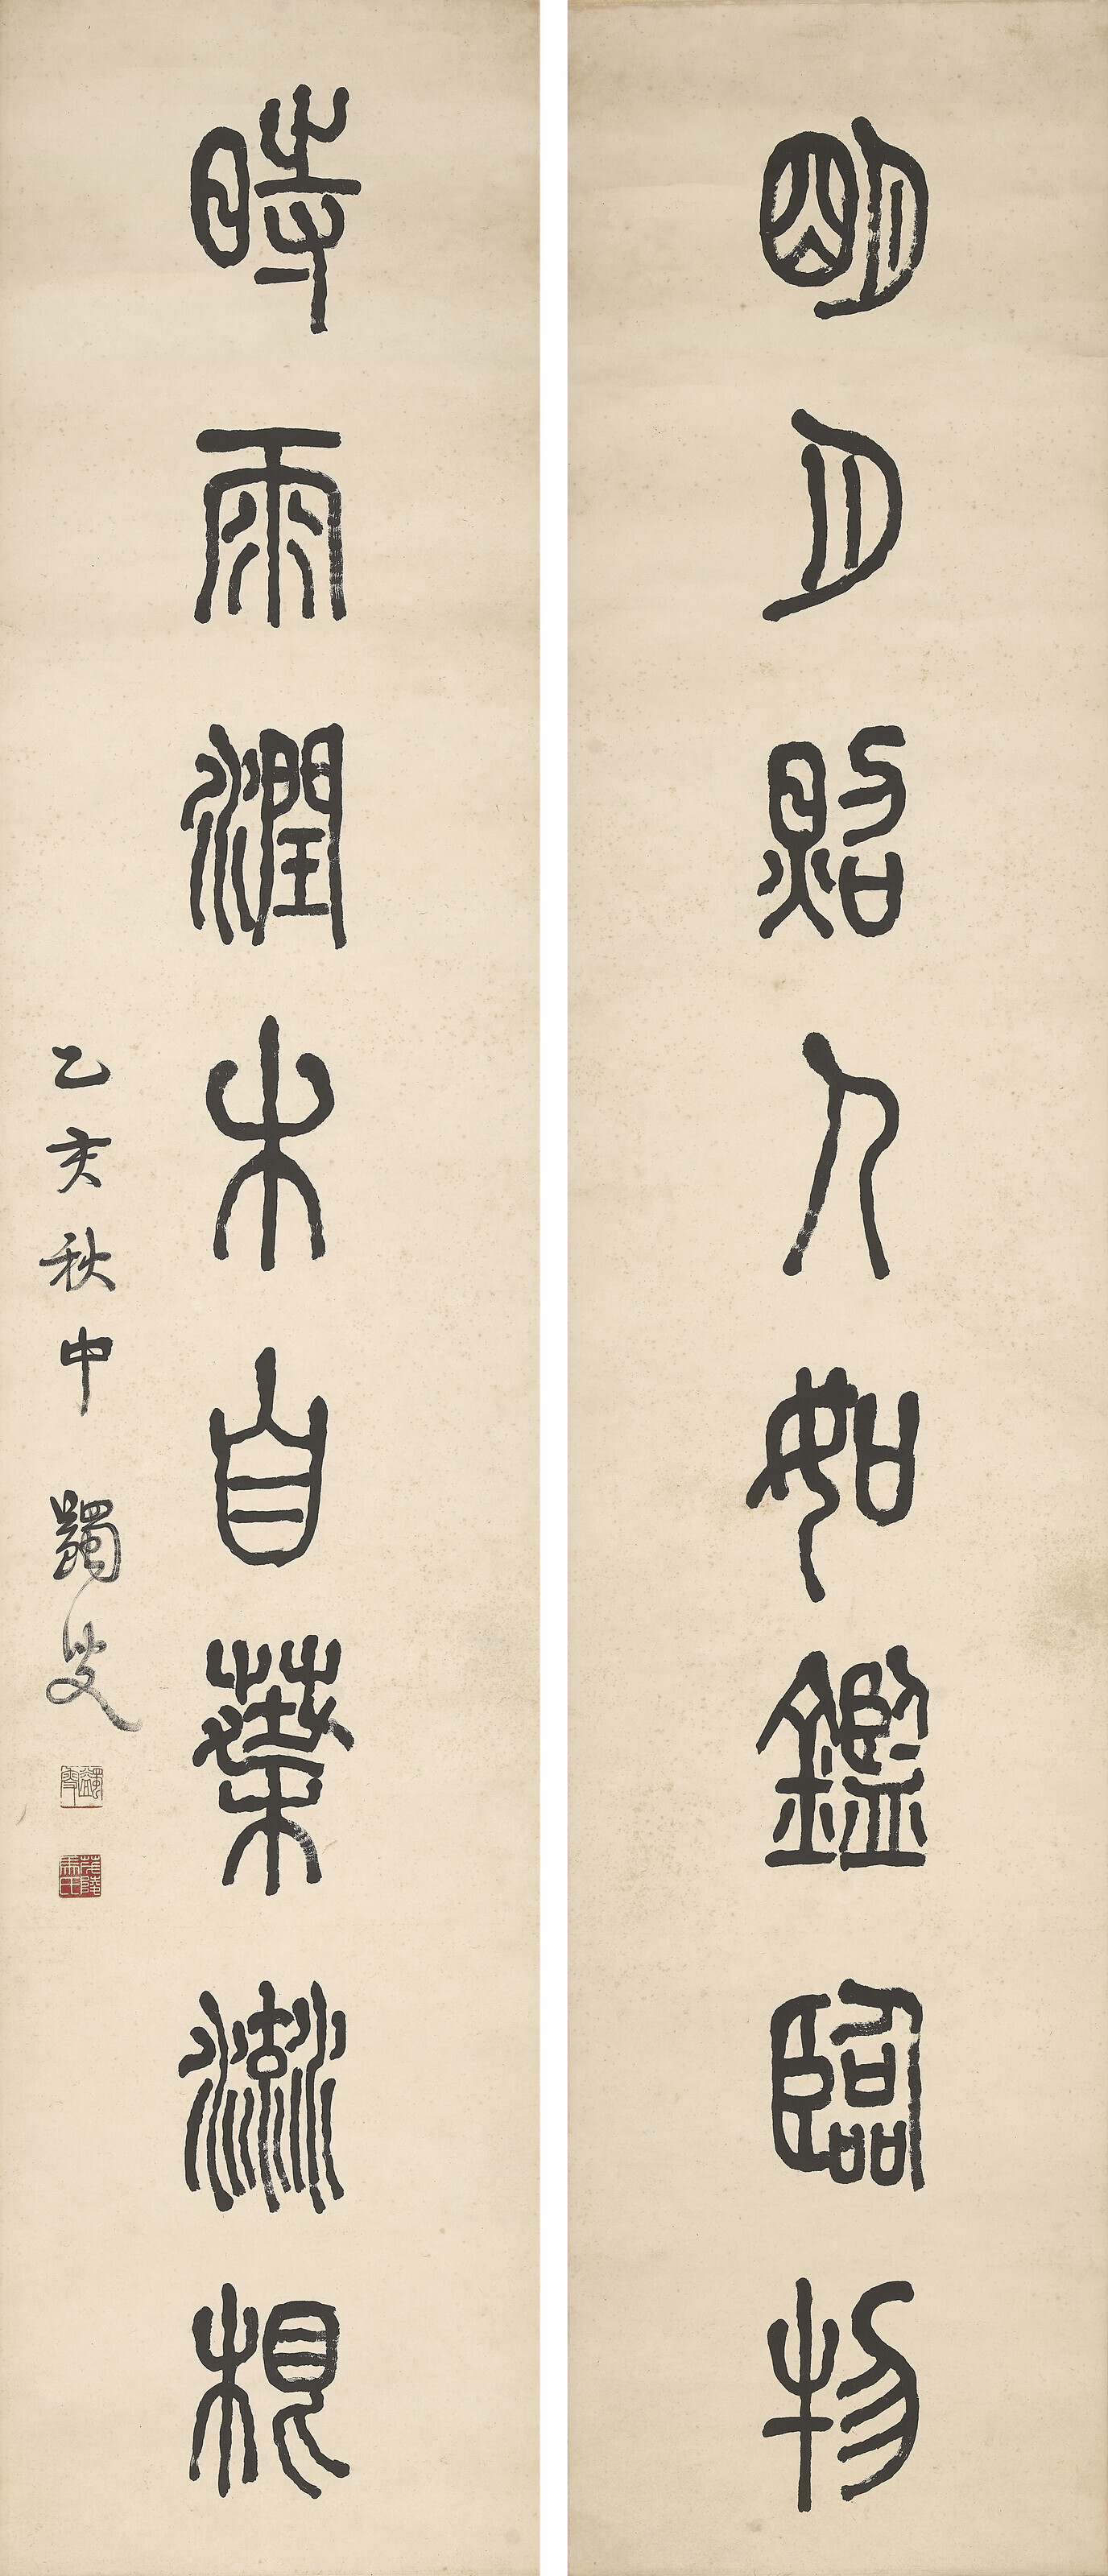 明月照人如鑑臨物
時雨潤木自葉流根
乙亥秋中 蠲叟